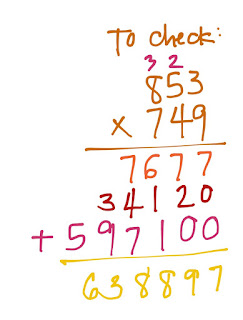 To check:
3 2
853
x 749
7677
34120
+ 597100
638897